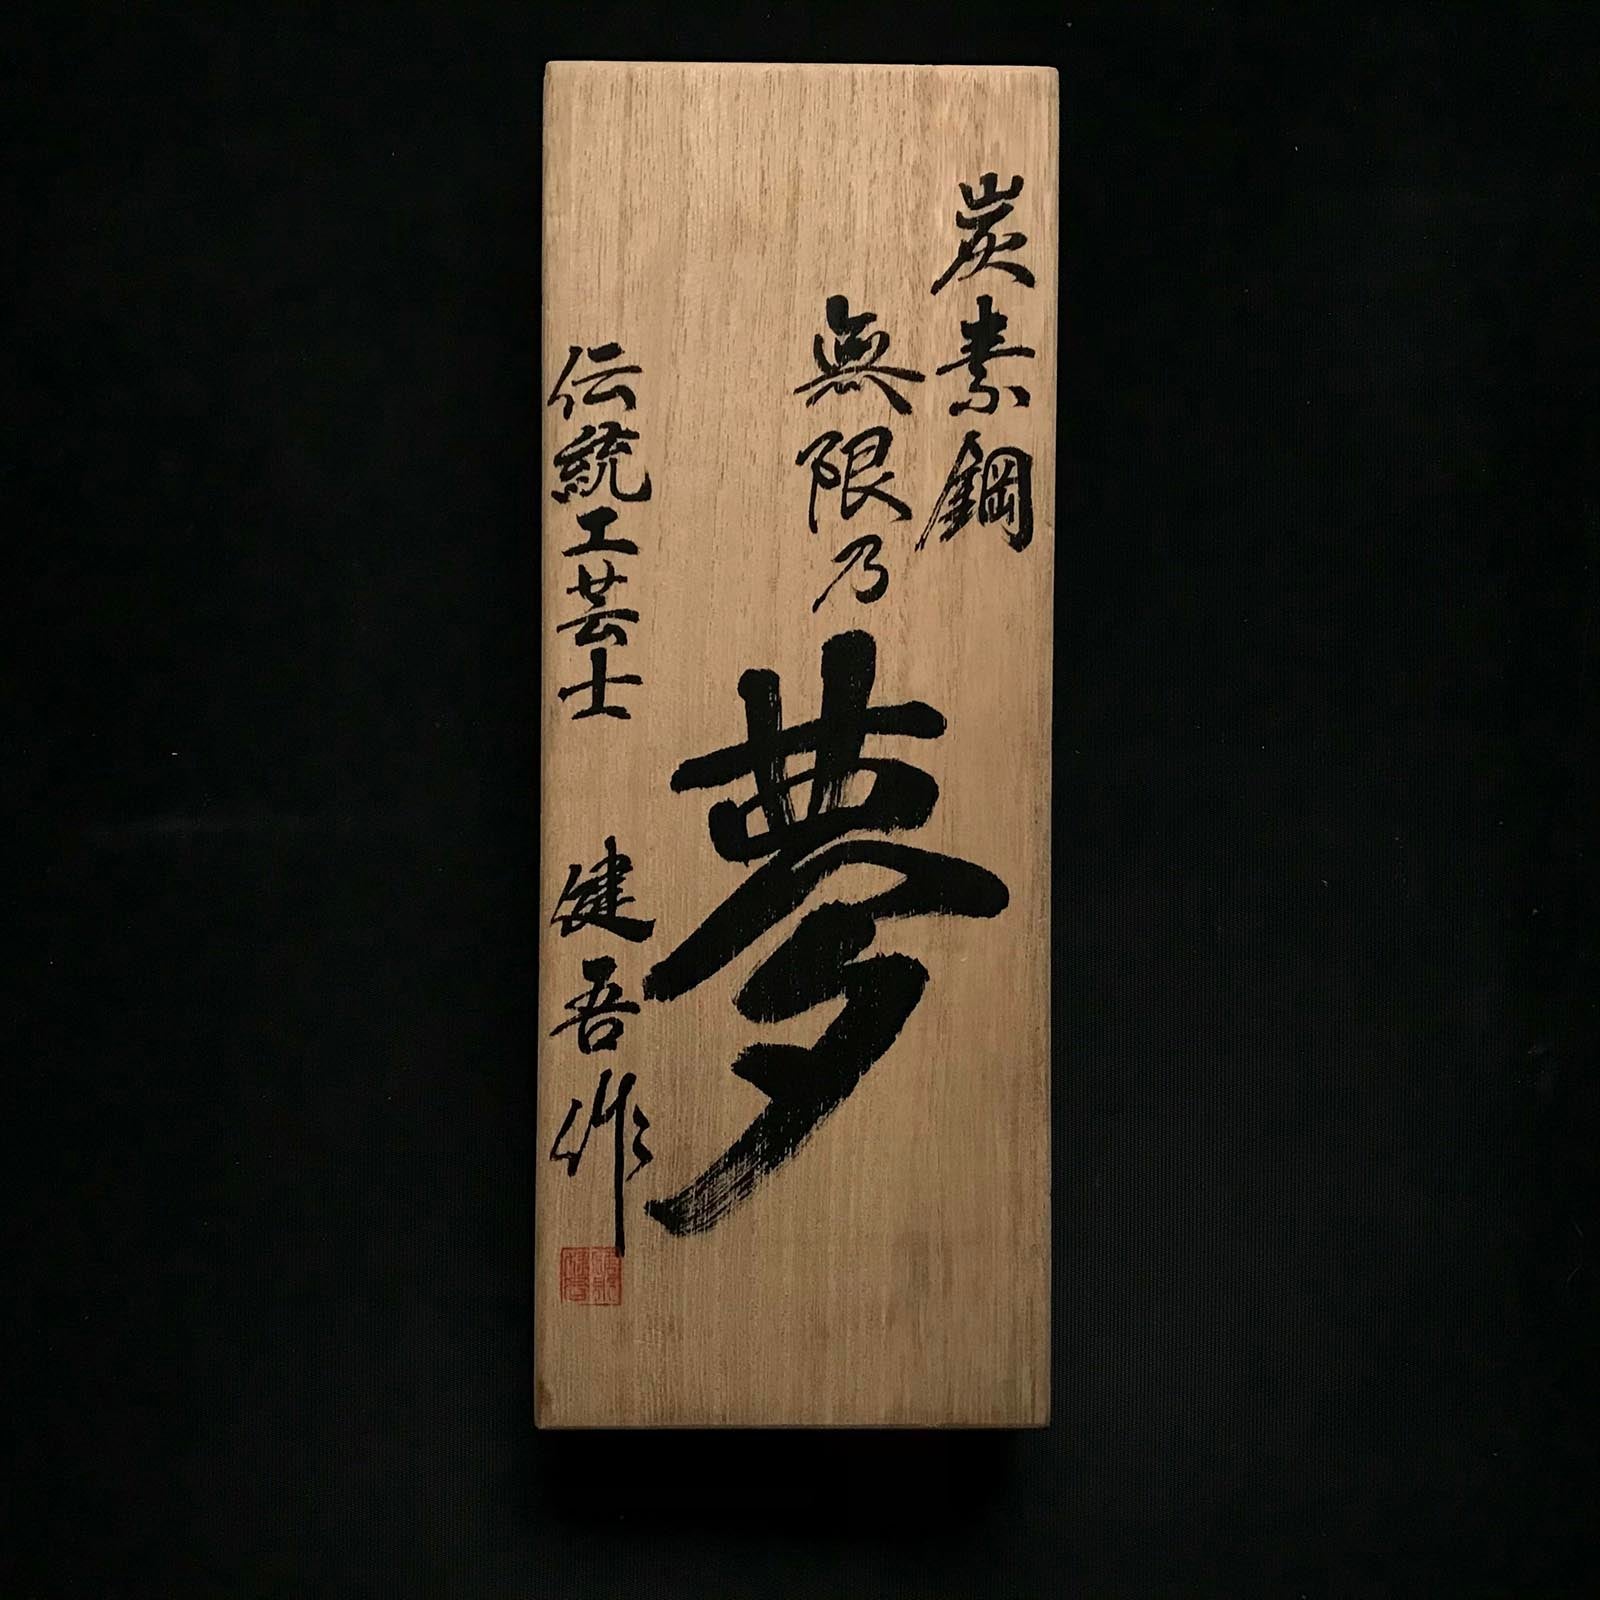 炭素鋼
無限乃
夢
伝統工芸士 健吾作